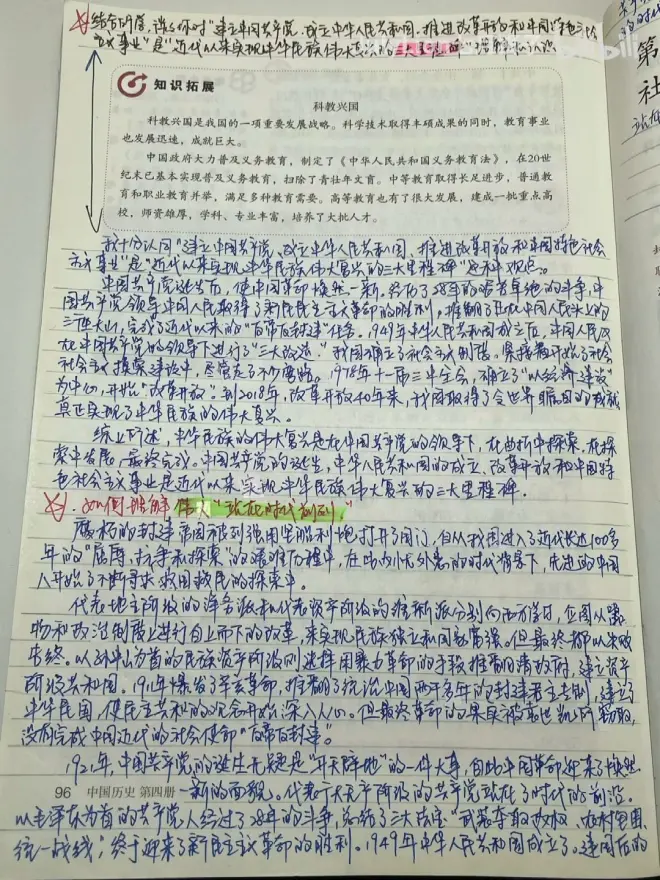 结合所学,谈谈你对“建立中国共产党、成立中华人民共和国、推进改革开放和中国特色社会
主义事业”是“近代以来实现中华民族伟大复兴的三大里程碑”的理解和认识
知识拓展
科教兴国
科教兴国是我国的一项重要发展战略。科学技术取得丰硕成果的同时,教育事业
也发展迅速,成就巨大。
中国政府大力普及义务教育,制定了《中华人民共和国义务教育法》,在20世
纪末已基本实现普及义务教育,扫除了青壮年文盲。中等教育取得长足进步,普通教
育和职业教育并举,满足多种教育需要。高等教育也有了很大发展,建成一批重点高
校,师资雄厚,学科、专业丰富,培养了大批人才。
我十分认同“建立中国共产党、成立中华人民共和国、推进改革开放和中国特色社会
主义事业”是“近代以来实现中华民族伟大复兴的三大里程碑”这种观点。
中国共产党诞生后,使中国革命焕然一新。经历了28年的艰苦卓绝的斗争,中
国共产党领导中国人民取得了新民主主义革命的胜利,推翻了压在中国人民头上的
三座大山,完成了近代以来的“反帝反封建”任务。1949年中华人民共和国成立后,中国人民
在中国共产党的领导下进行了“三大改造”,我国确立了社会主义制度。紧接着开始了社会
社会主义探索建设中,尽管走了不少弯路。1978年十一届三中全会,确立了“以经济建设”
为中心,开始“改革开放”。到2018年,改革开放40年来,我国取得了令世界瞩目的成就
真正实现了中华民族的伟大复兴。
综上所述,中华民族的伟大复兴是在中国共产党的领导下,在曲折中探索,在探
索中发展,最终完成。中国共产党的诞生,中华人民共和国的成立、改革开放和中国特
色社会主义事业是近代以来,实现中华民族伟大复兴的三大里程碑。
如何理解伟人“站在时代前列”
腐朽的封建帝国被列强用坚船利炮打开了国门,自从我国进入了近代长达100多
年的“屈辱、抗争和探索”的艰难历程中,在此内忧外患的时代背景下,先进的中国
人开始了不断寻求救国救民的探索中。
代表地主阶级的洋务派和代表资产阶级的维新派分别向西方学习,企图从器
物和政治制度上进行自上而下的改革,来实现民族独立和国家富强。但最终都以失败
告终。以孙中山为首的民族资产阶级则选择用暴力革命的手段推翻清政府,建立资产
阶级共和国。1911年爆发了辛亥革命,推翻了统治中国两千多年的封建君主专制,建立了
中华民国,使民主共和的观念开始深入人心。但最终革命的果实被袁世凯所窃取,
没有完成中国近代的社会使命“反帝反封建”。
1921年,中国共产党的诞生无疑是“开天辟地”的一件大事,自此中国革命迎来了焕然
一新的面貌。代表了无产阶级的共产党站在了时代的前沿。
96 中国历史 第四册
以毛泽东为首的共产党人经过了28年的斗争,总结了三大法宝“武装夺取政权、农村包围、
统一战线;终于迎来了新民主主义革命的胜利。1949年中华人民共和国成立了。建国后的
第
社